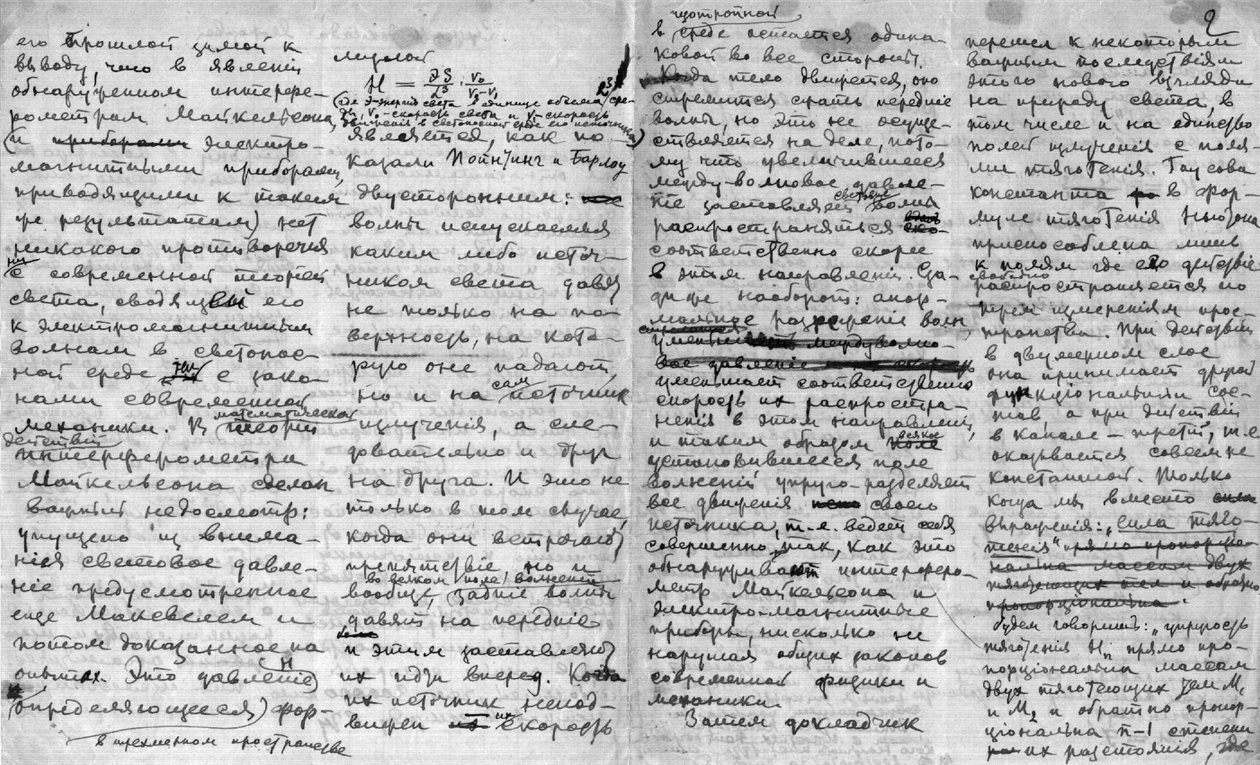 его прошлой зимой к
выводу, что в явленіи
обнаруженном интерфе-
рометром Майкельсона,
(и электро-
магнитными приборами,
приводящими к таким
же результатам) нет
никакого противоречія
ни с современной теоріей
света, сводящей его
к электромагнитным
волнам в светонос-
ной среде, ни с зако-
нами современной
механики. В математической теоріи
действія
интерферометра
Майкельсона сделан
важный недосмотр:
упущено из внима-
нія световое давле-
ніе предусмотренное
еще Максвелем и
потом доказанное на
опытах. Это давленіе
(определяющееся) фор-
в трехмерном пространстве
мулой
H = 
(где Э-энергія света в единице объема сре-
ды, V₀-скорость света и V₁-скорость
движенія в светоносной среде его источника)
является, как по-
казали Пойнтинг и Барлоу
двусторонним:
волны испускаемыя
каким либо источ-
ником света давят
не только на по-
верхность, на кото-
рую оне падают,
но и на сам источник
излученія, а сле-
довательно и друг
на друга. И это не
только в том случае,
когда они встречают
препятствіе но и
во всяком поле волненія
вообще, задніе волны
давят на передніе
и этим заставляют
их идти вперед. Когда
их источник непод-
вижен их скорость
изотропной
в среде остается одина-
ковой во все стороны.
Когда тело движется, оно
стремится сжать передніе
волны, но это не осуще-
ствляется на деле, пото-
му что увеличившееся
между-волновое давле-
ніе заставляет световыя волны
распространяться
соответственно скорее
в этом направленіи. Сза-
ди же наоборот: анор-
мальное разреженіе волн,
уменьшает соответственно
скорость их распростра-
ненія в этом направленіи,
и таким образом всякое
установившееся поле
волненій упруго-разделяет
все движенія своего
источника, т.-е. ведет себя
совершенно так, как это
обнаруживают интерферо-
метр Майкельсона и
электро-магнитные
приборы, нисколько не
нарушая общих законов
современной физики и
механики.
Затем докладчик
2
перешел к некоторым
важным последствіям
этого новаго взгляда
на природу света, в
том числе и на единство
полей излученія с поля-
ми тяготенія. Гаусова
константа в фор-
муле тяготенія Ньютона
приспособлена лишь
к полям где его действіе
свободно
распространяется по
трем измереніям прос-
транства. При действіи
в двумерном слое
она принимает другой
функціональный сос-
тав, а при действіи
в канале - третій, т.е
оказывается совсем не
константой. Только
когда мы вместо
выраженія: „сила тяго-
тенія" прямо пропорціо-
нальна массам двух
тяготеющих тел и обратно
пропорціональна
будем говорить: „упругость
тяготенія Hₙ прямо про-
порціональна массам
двух тяготеющих тел M₁
и M₂ и обратно пропор-
ціональна n-1 степени
их разстоянія, где